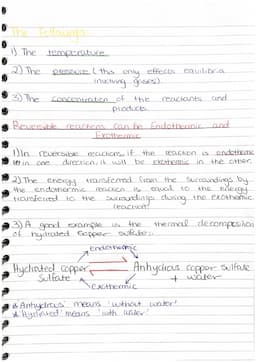 The Following:
1) The temperature
2) The pressure (this only effects equilibria
involving gases).
3) The concentration of the reactants and
products.
Reversible reactions can be Endothermic and
Exothermic
1) In reversible reactions, if the reaction is endothermic
in one direction, it will be exothermic in the other.
2) The energy transferred from the surroundings by
the endothermic reaction is equal to the energy
transferred to the surroundings during the exothermic
reaction.
3) A good example is the thermal decomposition
of hydrated copper sulfate:
endothermic
Hydrated copper Anhydrous copper sulfate
Sulfate + water
exothermic
* Anhydrous means 'without water'
* 'Hydrated' means 'with water'